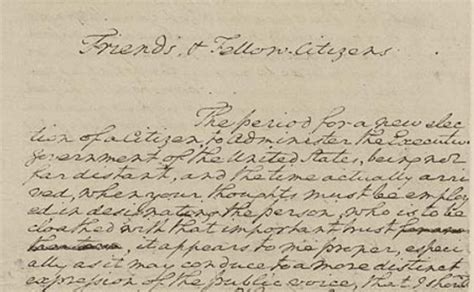 Friends, & Fellow-Citizens
The period for a new elec
tion of a Citizen to administer the Executive
government of the United States, being not
far distant, and the time actually arri
ved, when your thoughts must be employ
ed in designating the person, who is to be
cloathed with that important
, it appears to me proper, especi
ally as it may conduce to a more distinct
expression of the public voice, that I should